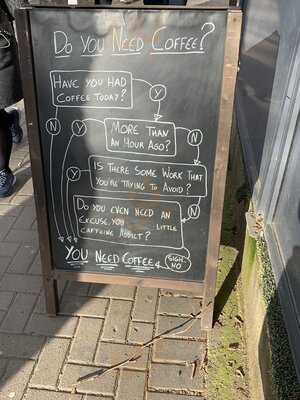 Do You Need Coffee?
Have you had
Coffee today?
Y
N
More than
an hour ago?
Y
N
Is there some work that
you're trying to avoid?
Y
N
Do you even need an
excuse, you little
caffeine addict?
You Need Coffee
Sigh
No